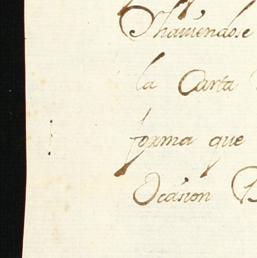 Thaviendose
la Carta
forma que
Ocasion